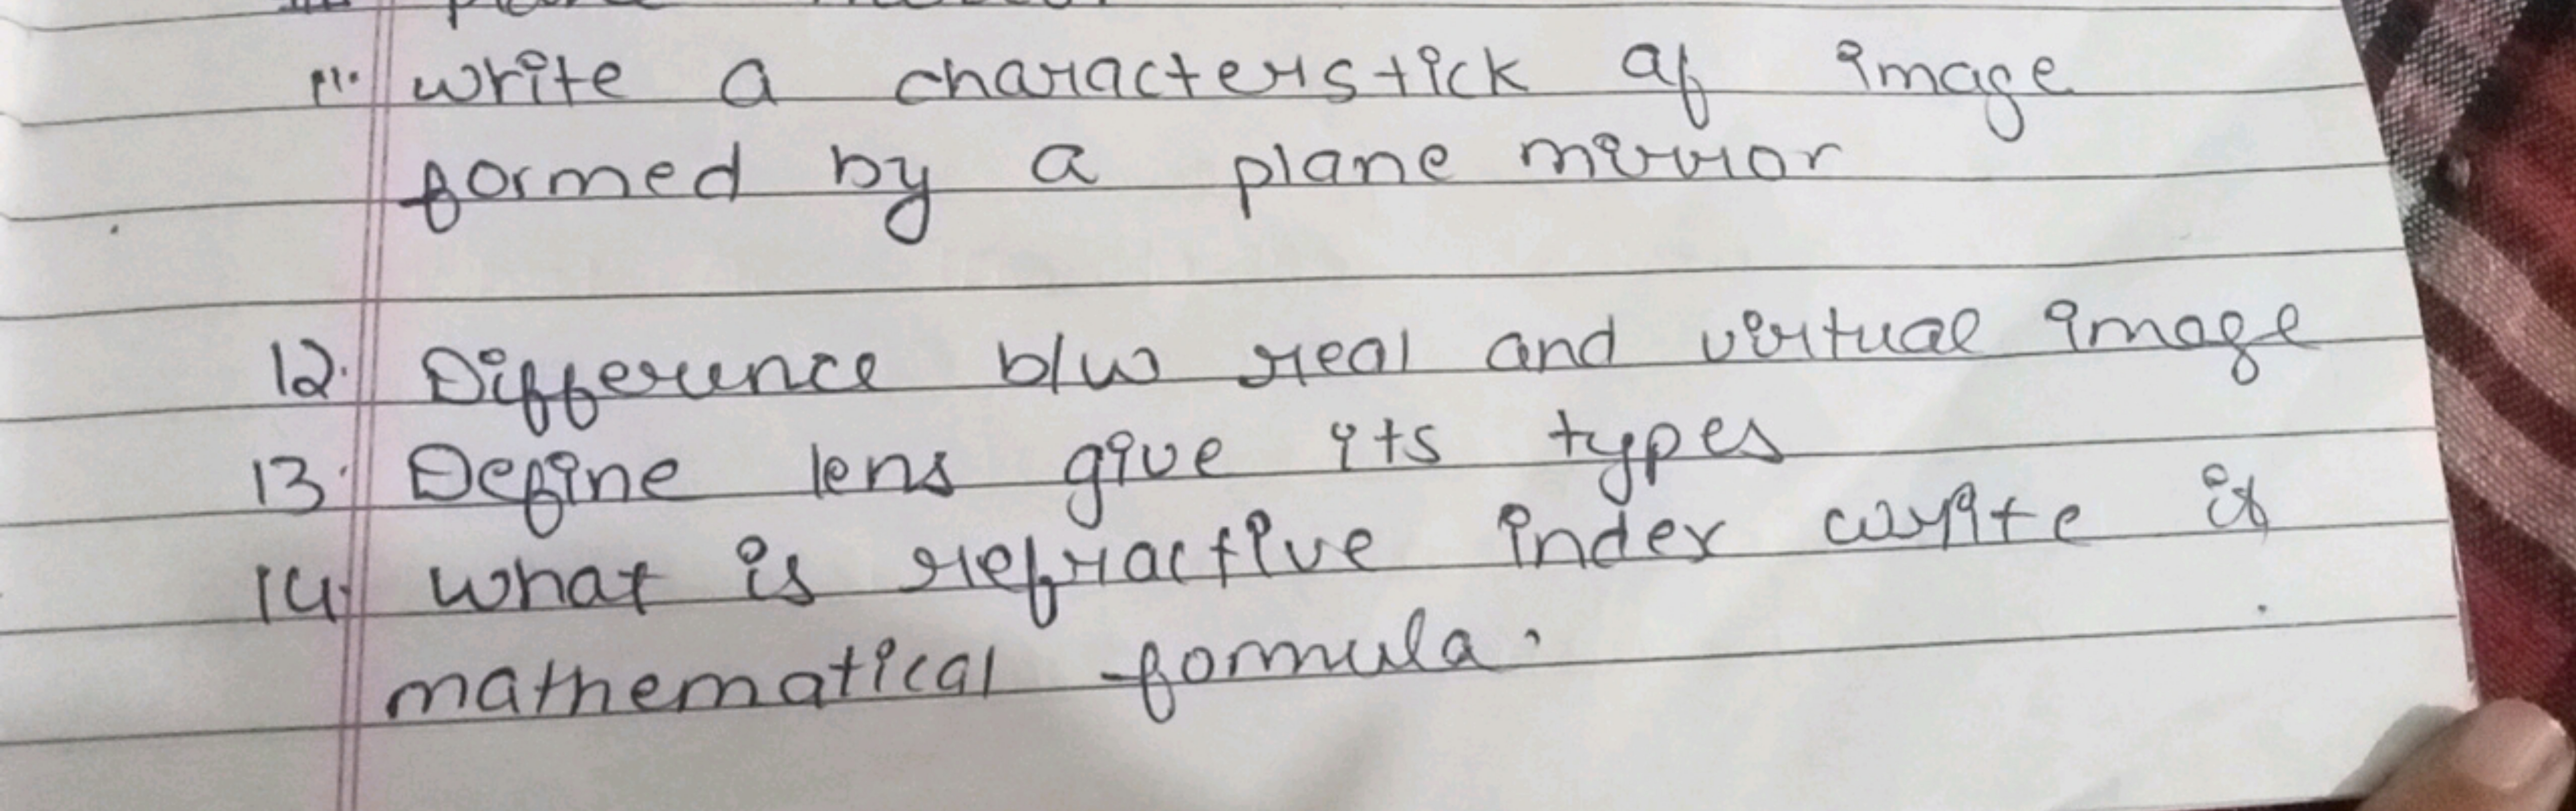 11. write a characterstick of image
formed by a plane mirror
12. Difference b/w real and virtual image
13. Define lens give its types
14. what is refractive index write it
mathematical formula.